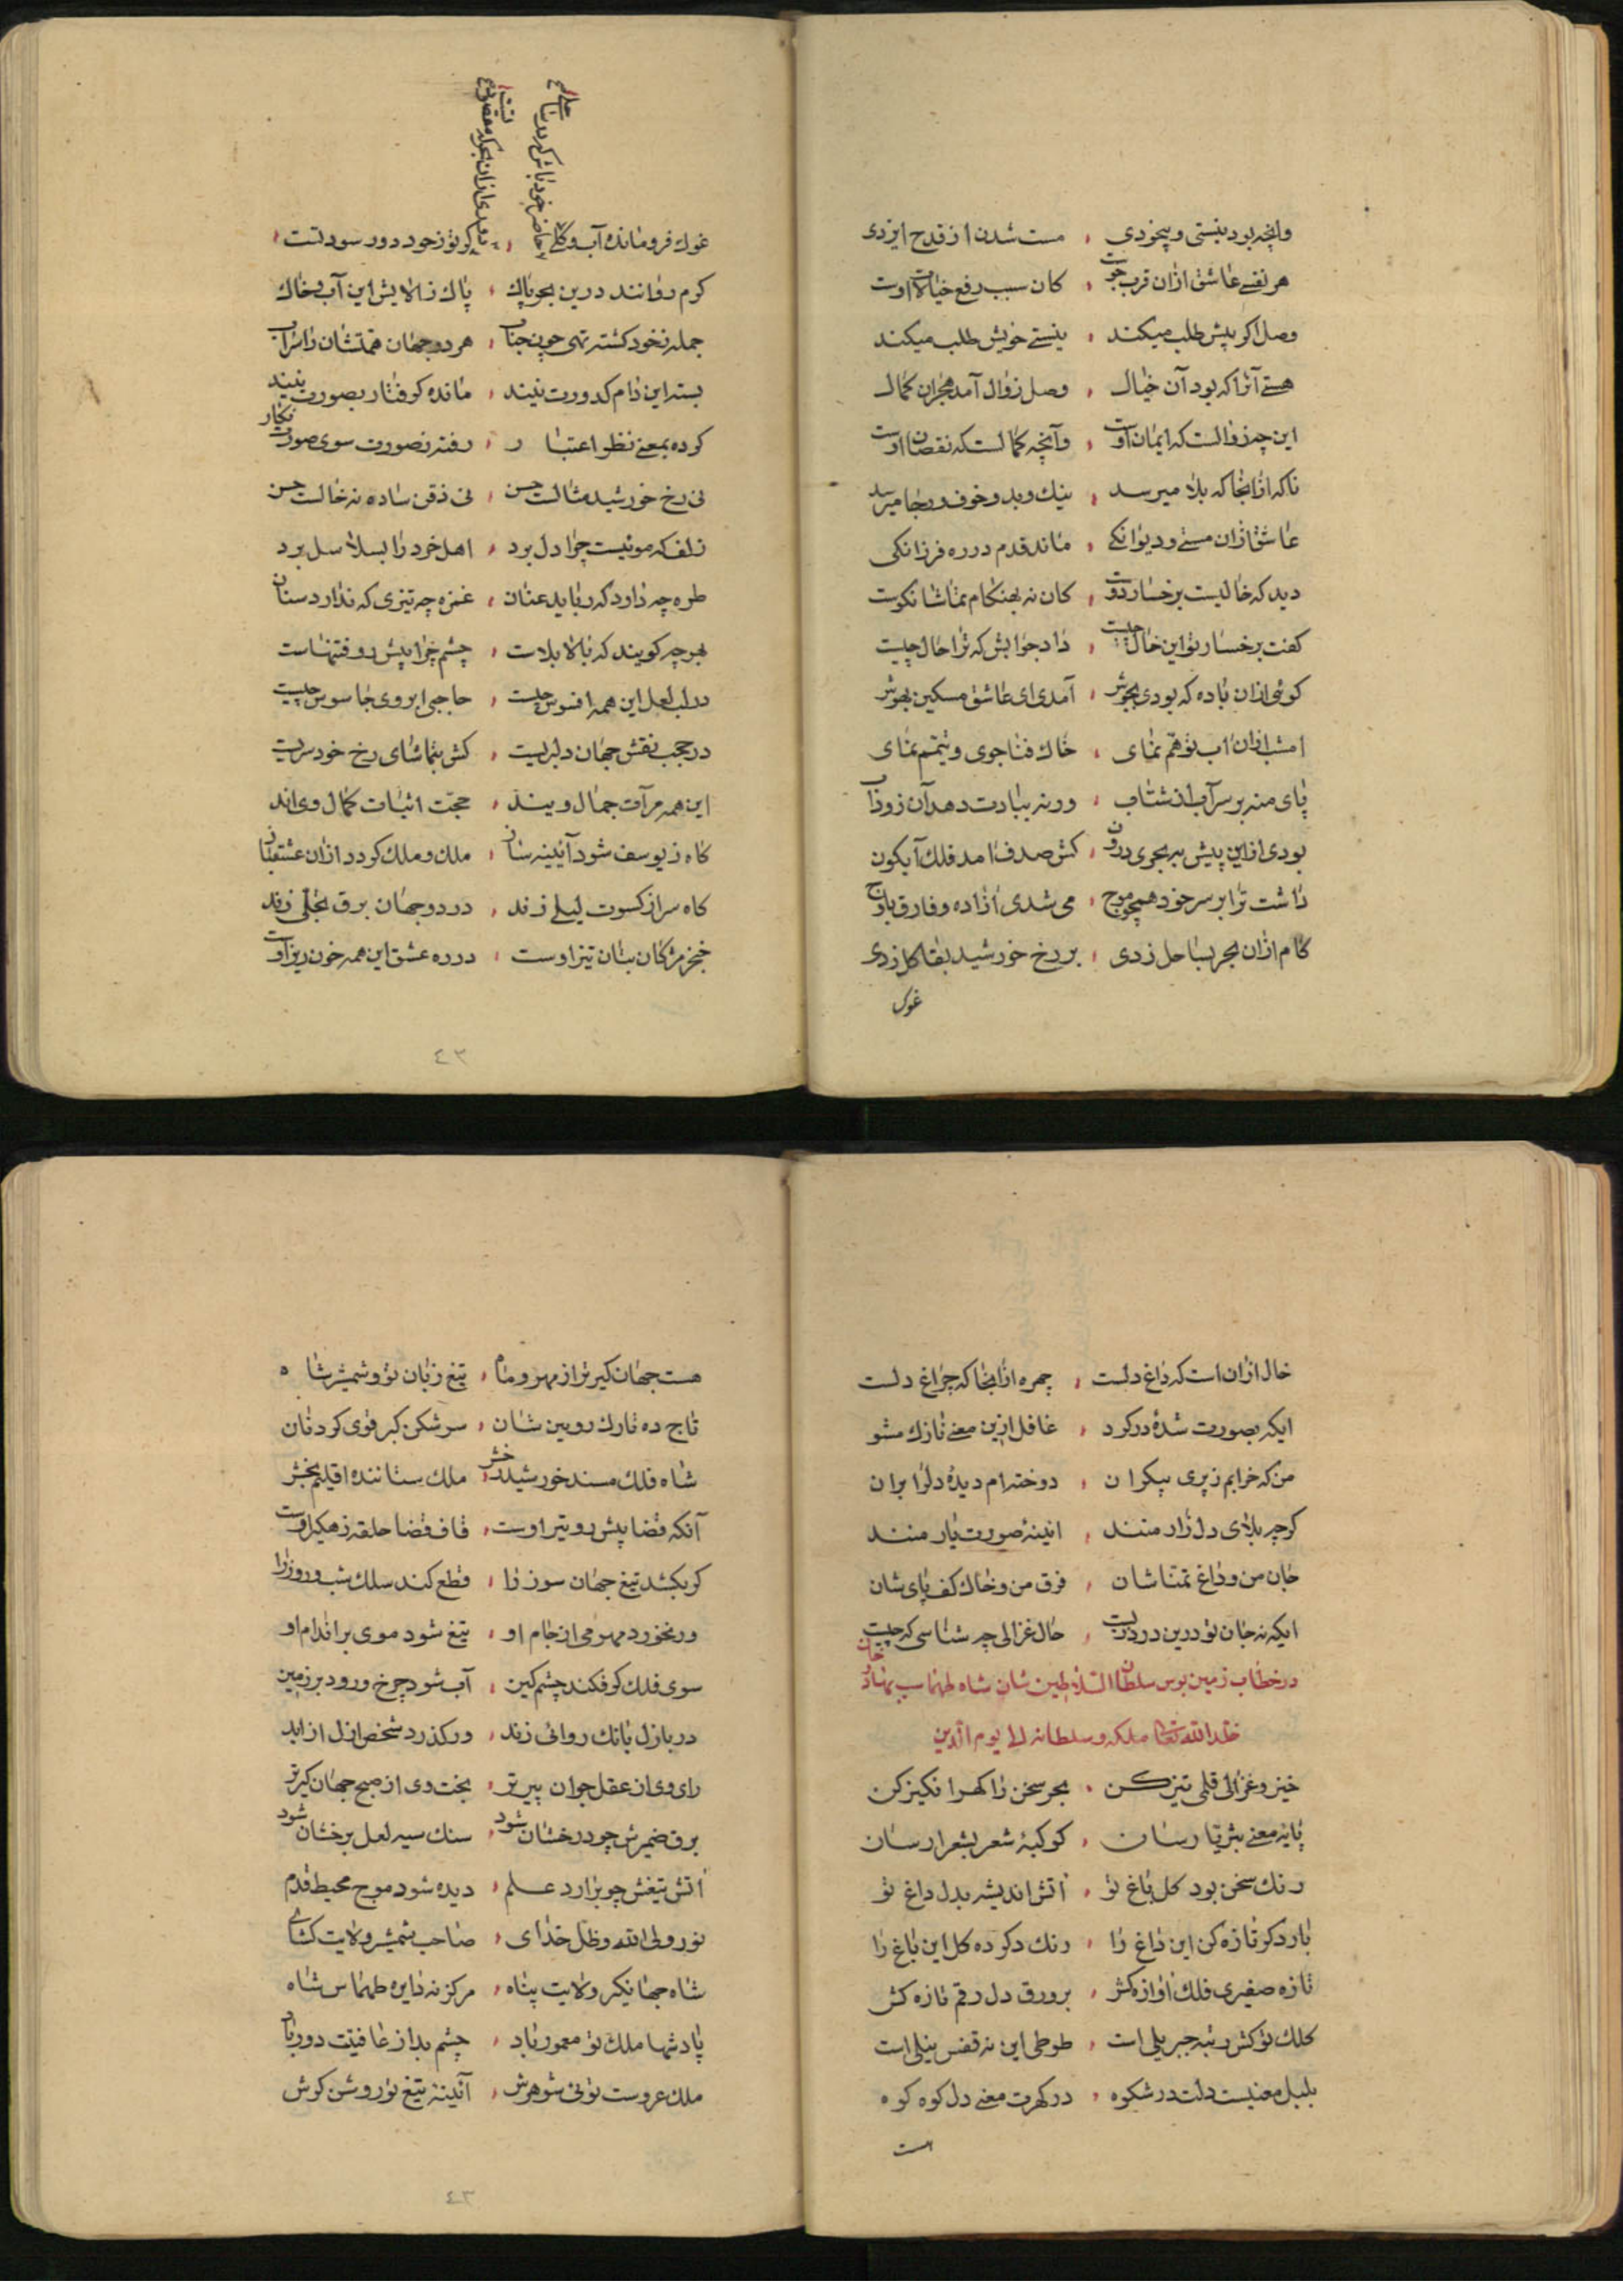 وانچه بود نیستی و بیخودی ، مست شدن از قدح ایزدی
هر نفسے عاشق ازان قرب جوست ، کان سبب رفع خیالات اوست
وصل اکر بیش طلب میکند ، نیستے خویش طلب میکند
هستے آنرا که بود آن خیال ، وصل زوال آمد هجران کمال
این چه زوالست که ایمان اوست ، وانچه کمالست که نقصان اوست
تا که ازانجا که بلا میرسد ، نیك و بد و خوف و رجا میرسد
عاشق ازان مستے و دیوانکے ، ماند قدم در ره فرزانکی
دید که خالیست بر خسار دوست ، کان نه بهنکام تماشا نکوست
کفت بر خسار تو این خال چیست ، داد جوابش که ترا حال چیست
کوئی ازان باده که بودی بجوش ، آمدی ای عاشق مسکین بهوش
امشب ازان اب توهم نمای ، خاك فنا جوی و تیمم نمای
پای منه بر سر آب از شتاب ، ورنه ببادت دهد آن زود اب
بودی ازاین پیش ببحری درون ، کش صدف امد فلك آبکون
داشت ترا بر سر خود همچو موج ، می شدی ازاده و فارق باوج
کام ازان بحر بساحل زدی ، بر رخ خورشید بقا کل زدی
غوك
غوك فرومانده آب و کلے ، کر تو زخود دور سود تست
کرم روانند درین بحر پاك ، پاك زالایش این آب و خاك
جمله زخود کشته تهی چون حباب ، هر دو جهان همتشان را سراب
بسته این دام کدورت نیند ، مانده کرفتار بصورت نیند
کرده بمعنے نظر اعتبار ، رفته زصورت سوی صورت نکار
نی رخ خورشید مثالست حسن ، نی ذقن ساده نه خالست حسن
زلف که موئیست چرا دل برد ، اهل خرد را بسلاسل برد
طره چه دارد که رباید عنان ، غمزه چه تیزی که ندارد سنان
بهر چه کویند که بالا بلاست ، چشم چرا پیش رو فتنهاست
در لب لعل این همه افسوس چیست ، حاجبی ابروی جاسوس چیست
در حجب نقش جهان دلبریست ، کش بتماشای رخ خود سریست
این همه مرآت جمال ویند ، حجت اثبات کمال وی اند
کاه زیوسف شود آئینه سان ، ملك و ملك کردد ازان عشقبان
کاه سر از کسوت لیلے زند ، در دو جهان برق تجلی زند
خنجر مژکان بتان تیز اوست ، در ره عشق این همه خون ریز اوست
٤٣
خال ازان است که داغ دلست ، چهره ازانجا که چراغ دلست
ایکه بصورت شدهٔ در کرو ، غافل ازین معنے نازك مشو
من که خرابم زپری پیکران ، دوخته ام دیدهٔ دلرا بران
کرچه بلای دل زار منند ، ائینهٔ صورت یار منند
جان من و داغ تمناشان ، فرق من و خاك کف پای شان
ایکه نه جان تو درین درد زیست ، حال غزالی چه شناسی که چیست
در خطاب زمین بوس سلطان السلاطین شان شاه طهماسب بهادر خان
خلد الله تعالی ملکه و سلطانه الی یوم الدین
خیز و غزالی قلمی تیز کن ، بحر سخن را کهر انکیز کن
پایه معنے بثریا رسان ، کوکبهٔ شعر بشعرا رسان
رنك سخن بود کل باغ تو ، اتش اندیشه بدل داغ تو
بار دکر تازه کن این داغ را ، رنك دکر ده کل این باغ را
تازه صفیری فلك آوازه کش ، بر ورق دل رقم تازه کش
کلك تو کش رتبه جبریلی است ، طوطی این نه قفس نیلی است
بلبل معنیست دلت در شکوه ، در کهرت معنے دل کوه کوه
هست
هست جهان کیر تر از مهر و ماه ، تیغ زبان تو و شمشیر شاه
تاج ده تارك رویین شان ، سر شکن کبر قوی کردنان
شاه فلك مسند خورشید رخش ، ملك ستاننده اقلیم بخش
آنکه قضا پیش رو تیر اوست ، قاف قضا حلقه زهکیر اوست
کر بکشد تیغ جهان سوز را ، قطع کند سلك شب و روز را
ور نخورد مهر و می از جام او ، تیغ شود موی بر اندام او
سوی فلك کر فکند چشم کین ، آب شود چرخ و رود بر زمین
در بازل بانك روائی زند ، ور کذرد شخص ازل از ابد
رای وی از عقل جوان پیر تر ، بخت وی از صبح جهان کیر تر
برق ضمیرش چو درخشان شود ، سنك سیه لعل برخشان شود
اتش تیغش چو برارد علم ، دیده شود موج محیط قدم
نور ولی الله و ظل خدای ، صاحب شمشیر ولایت کشای
شاه جهانکیر ولایت پناه ، مرکز نه دایره طهماس شاه
پادشها ملك تو معمور باد ، چشم بد از عافیتت دور باد
ملك عروست توئی شوهرش ، آئینه تیغ تو روشن کرش
٤٣